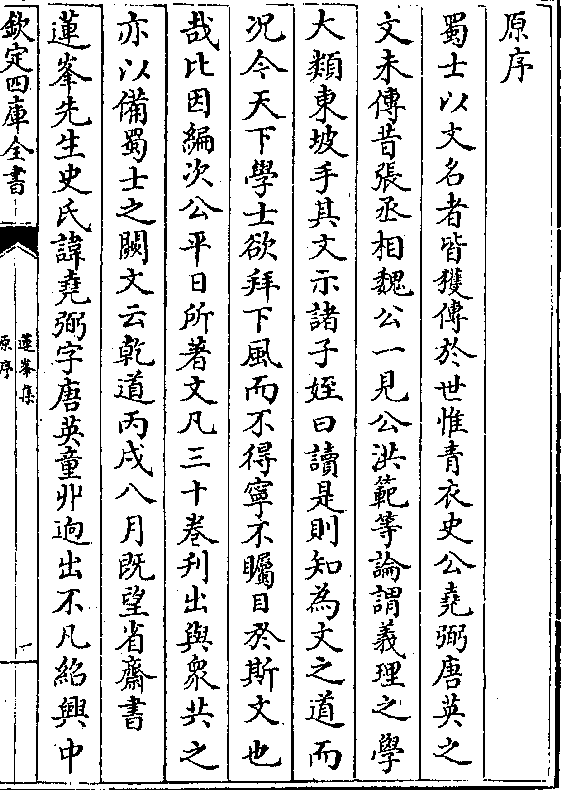 原序
蜀士以文名者皆獲傳於世惟青衣史公堯弼唐英之
文未傳昔張丞相魏公一見公洪範等論謂義理之學
大類東坡手其文示諸子姪曰讀是則知為文之道而
況今天下學士欲拜下風而不得寧不矚目於斯文也
哉比因編次公平日所著文凡三十卷刋出與衆共之
亦以備蜀士之闕文云乾道丙戌八月既望省齋書
蓮峯先生史氏諱堯弼字唐英童丱逈出不凡紹興中
欽定四庫全書
蓮峯集
原序
一